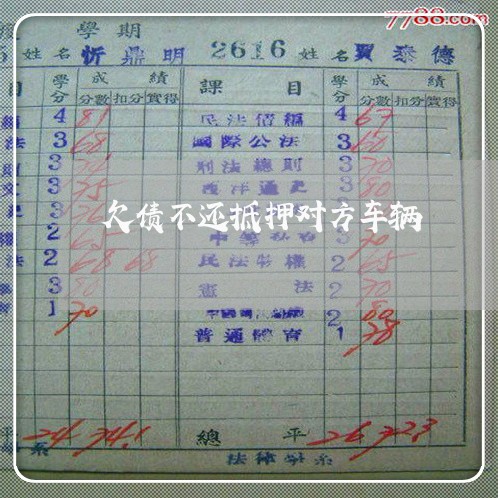 7788.com
學期
姓名 忻鼎明 2616 姓名 賈泰德
目 學分 成績 課目 學分 成績
分數 扣分 實得 分數 扣分 實得
4 81 民法債編 4 67
法 3 68 國際公法 3 60
3 刑法總則 3 70
3 75 西洋通史 3 80
3
欠债不还抵押对方车辆
2 65 70
法 2 68 68 民法物權 2 65
3 80 憲法 2 70
1 70 2 80
普通體育 1 78
平 24 74.1 總平 26 72.3
系 法律學系